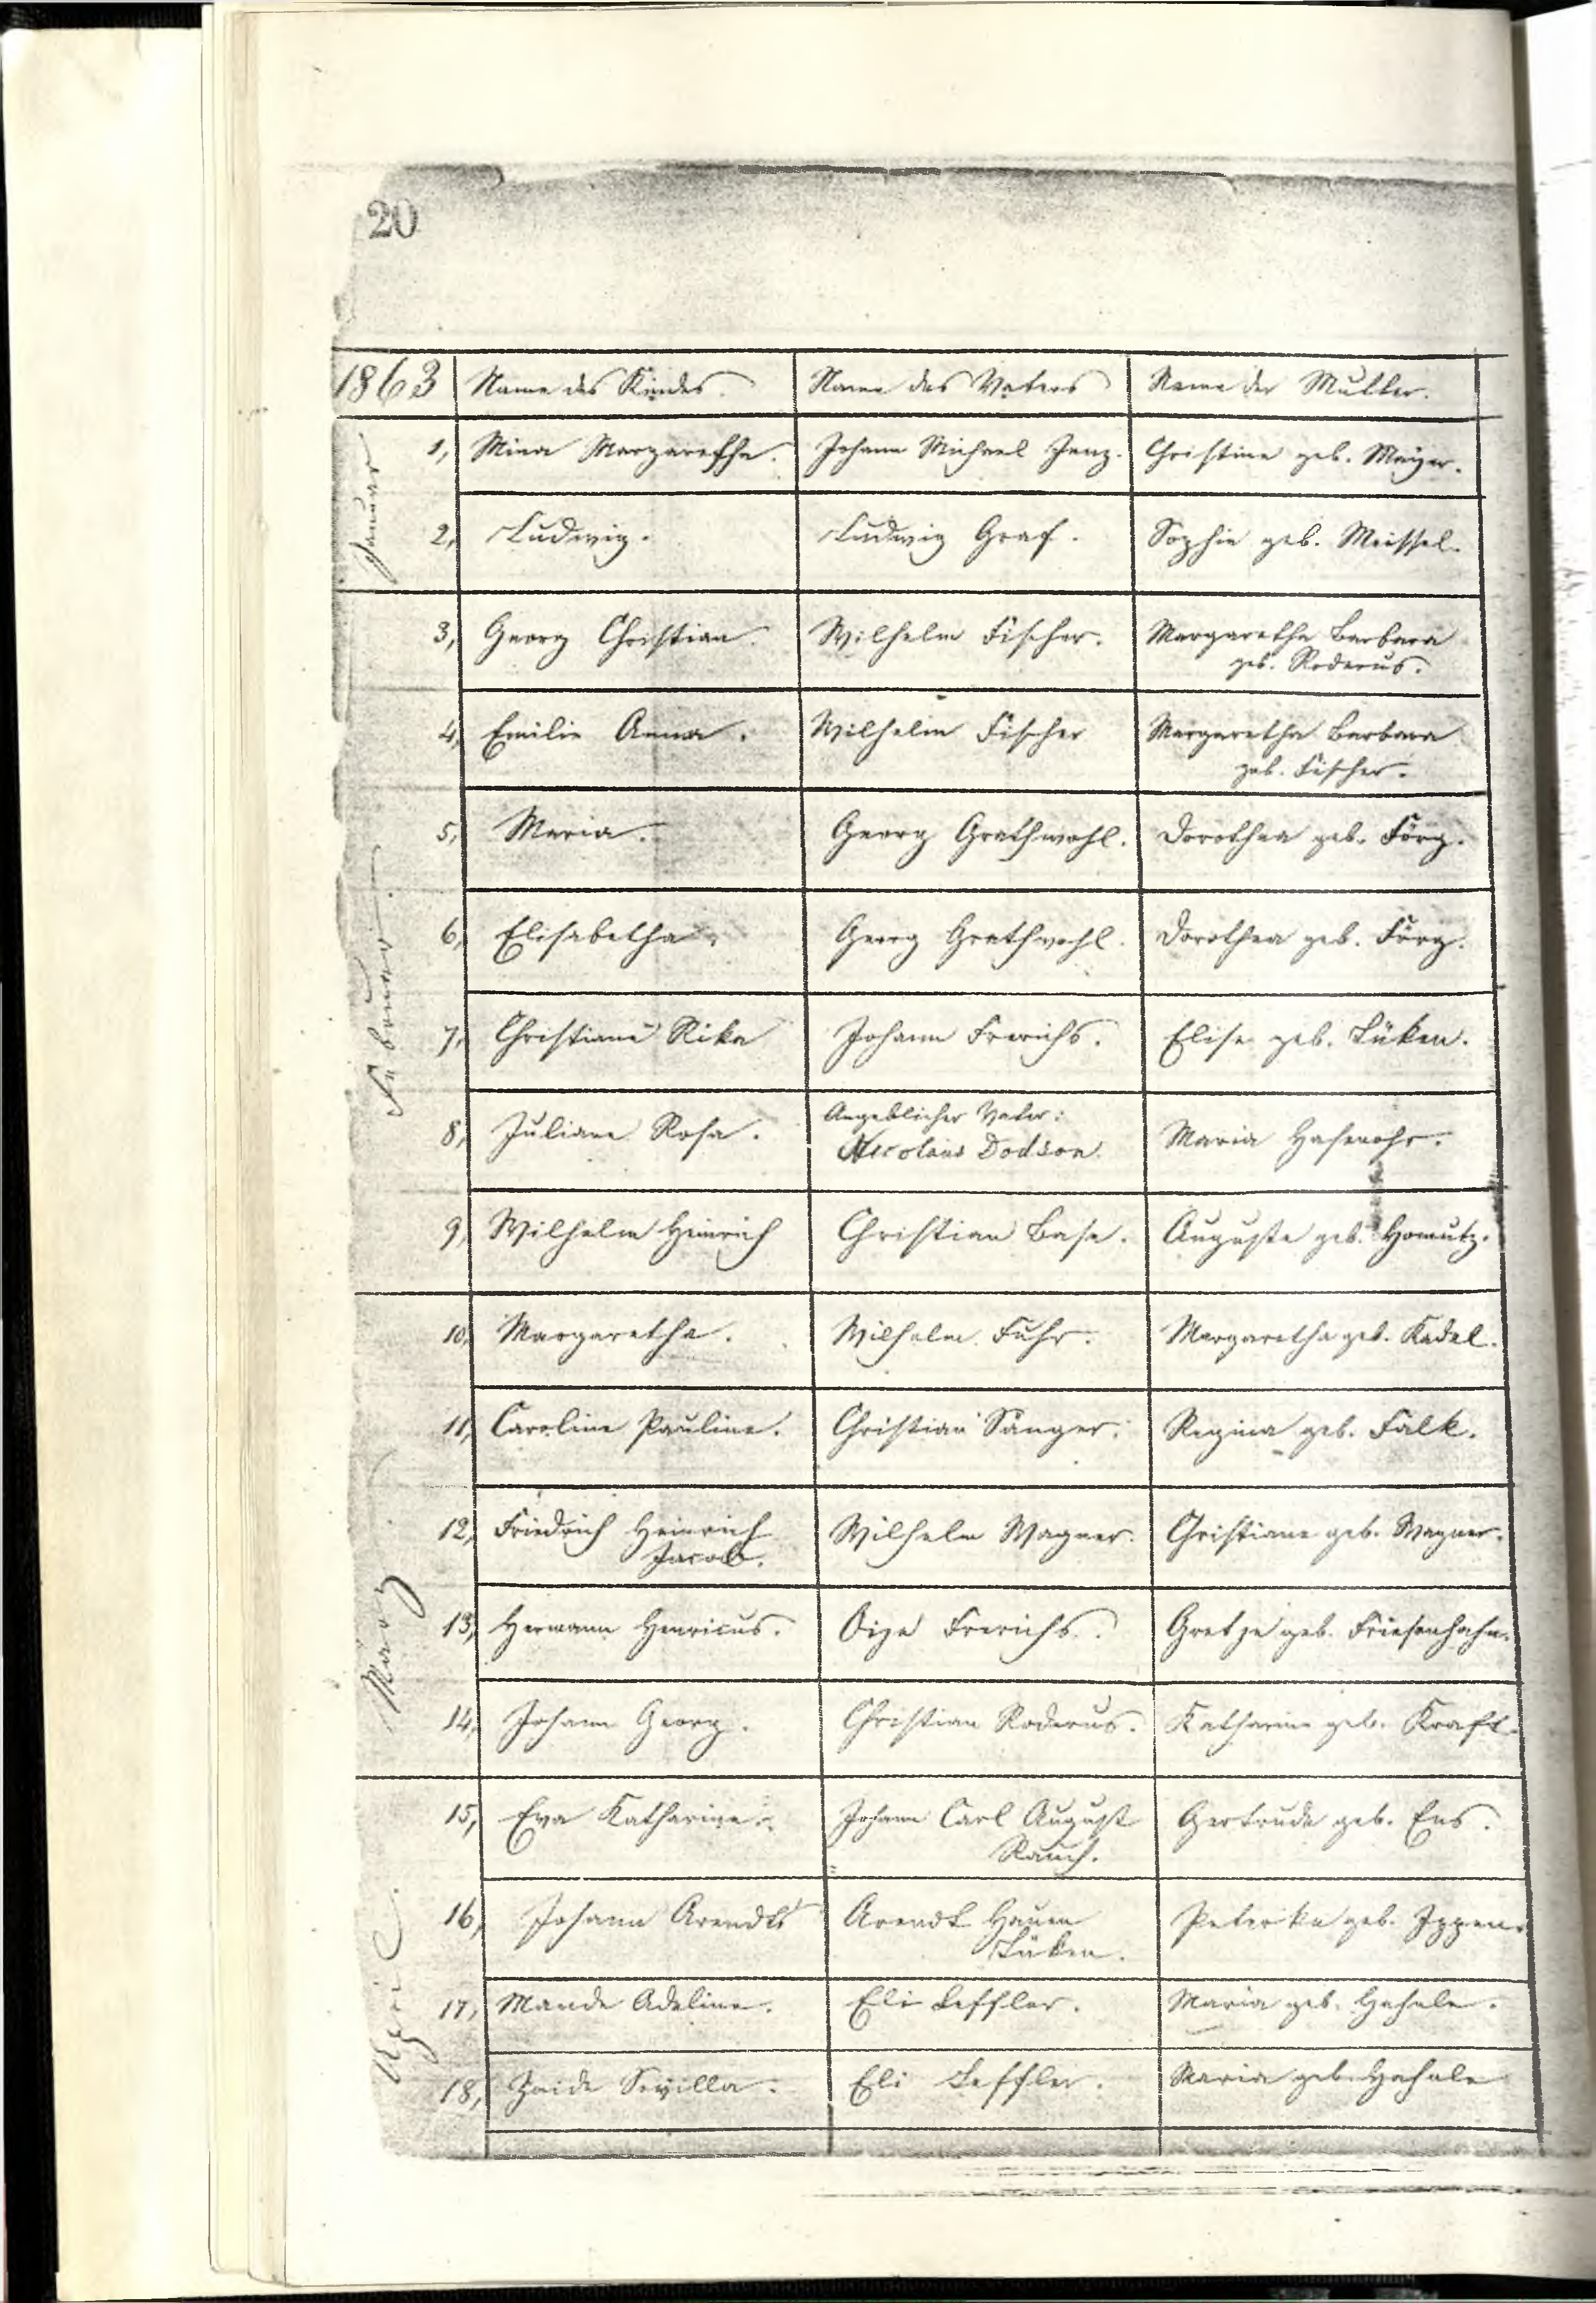 20
1863 Name des Kindes. Name des Vaters Name der Mutter.
Januar
1, Mina Margaretha. Johann Michael Janz. Christine geb. Mayer.
2, Ludwig. Ludwig Graf. Sophie geb. Meissel.
Februar.
3, Georg Christian. Wilhelm Fischer. Margaretha Barbara
geb. Roderus.
4, Emilie Anna. Wilhelm Fischer Margaretha Barbara
geb. Fischer.
5, Maria. Georg Grathwohl. Dorothea geb. Förg.
6, Elisabetha. Georg Grathwohl. Dorothea geb. Förg.
7, Christiane Rika Johann Frerichs. Elise geb. Lüken.
8, Juliane Rosa. Angeblicher Vater:
Nicolaus Dodson. Maria Hasenohr.
9, Wilhelm Heinrich Christian Base. Auguste geb. Homutz.
März
10, Margaretha. Wilhelm Fuhr. Margaretha geb. Kadel.
11, Caroline Pauline. Christian Sänger. Regina geb. Falk.
12, Friedrich Heinrich
Jacob. Wilhelm Wagner. Christiane geb. Wagner.
13, Hermann Henricus. Frerichs. Gretje geb. Friesenhahn.
14, Johann Georg. Christian Roderus. Katharine geb. Kraft.
April.
15, Eva Katharine. Johann Carl August
Rauch. Gertrude geb. Ens.
16, Johann Arendts Arendt Hauen
Lüken. Peterke geb. Ippen.
17, Maude Adeline. Eli Leffler. Maria geb. Hahnle.
18, Zaide Sevilla. Eli Leffler. Maria geb. Hahnle